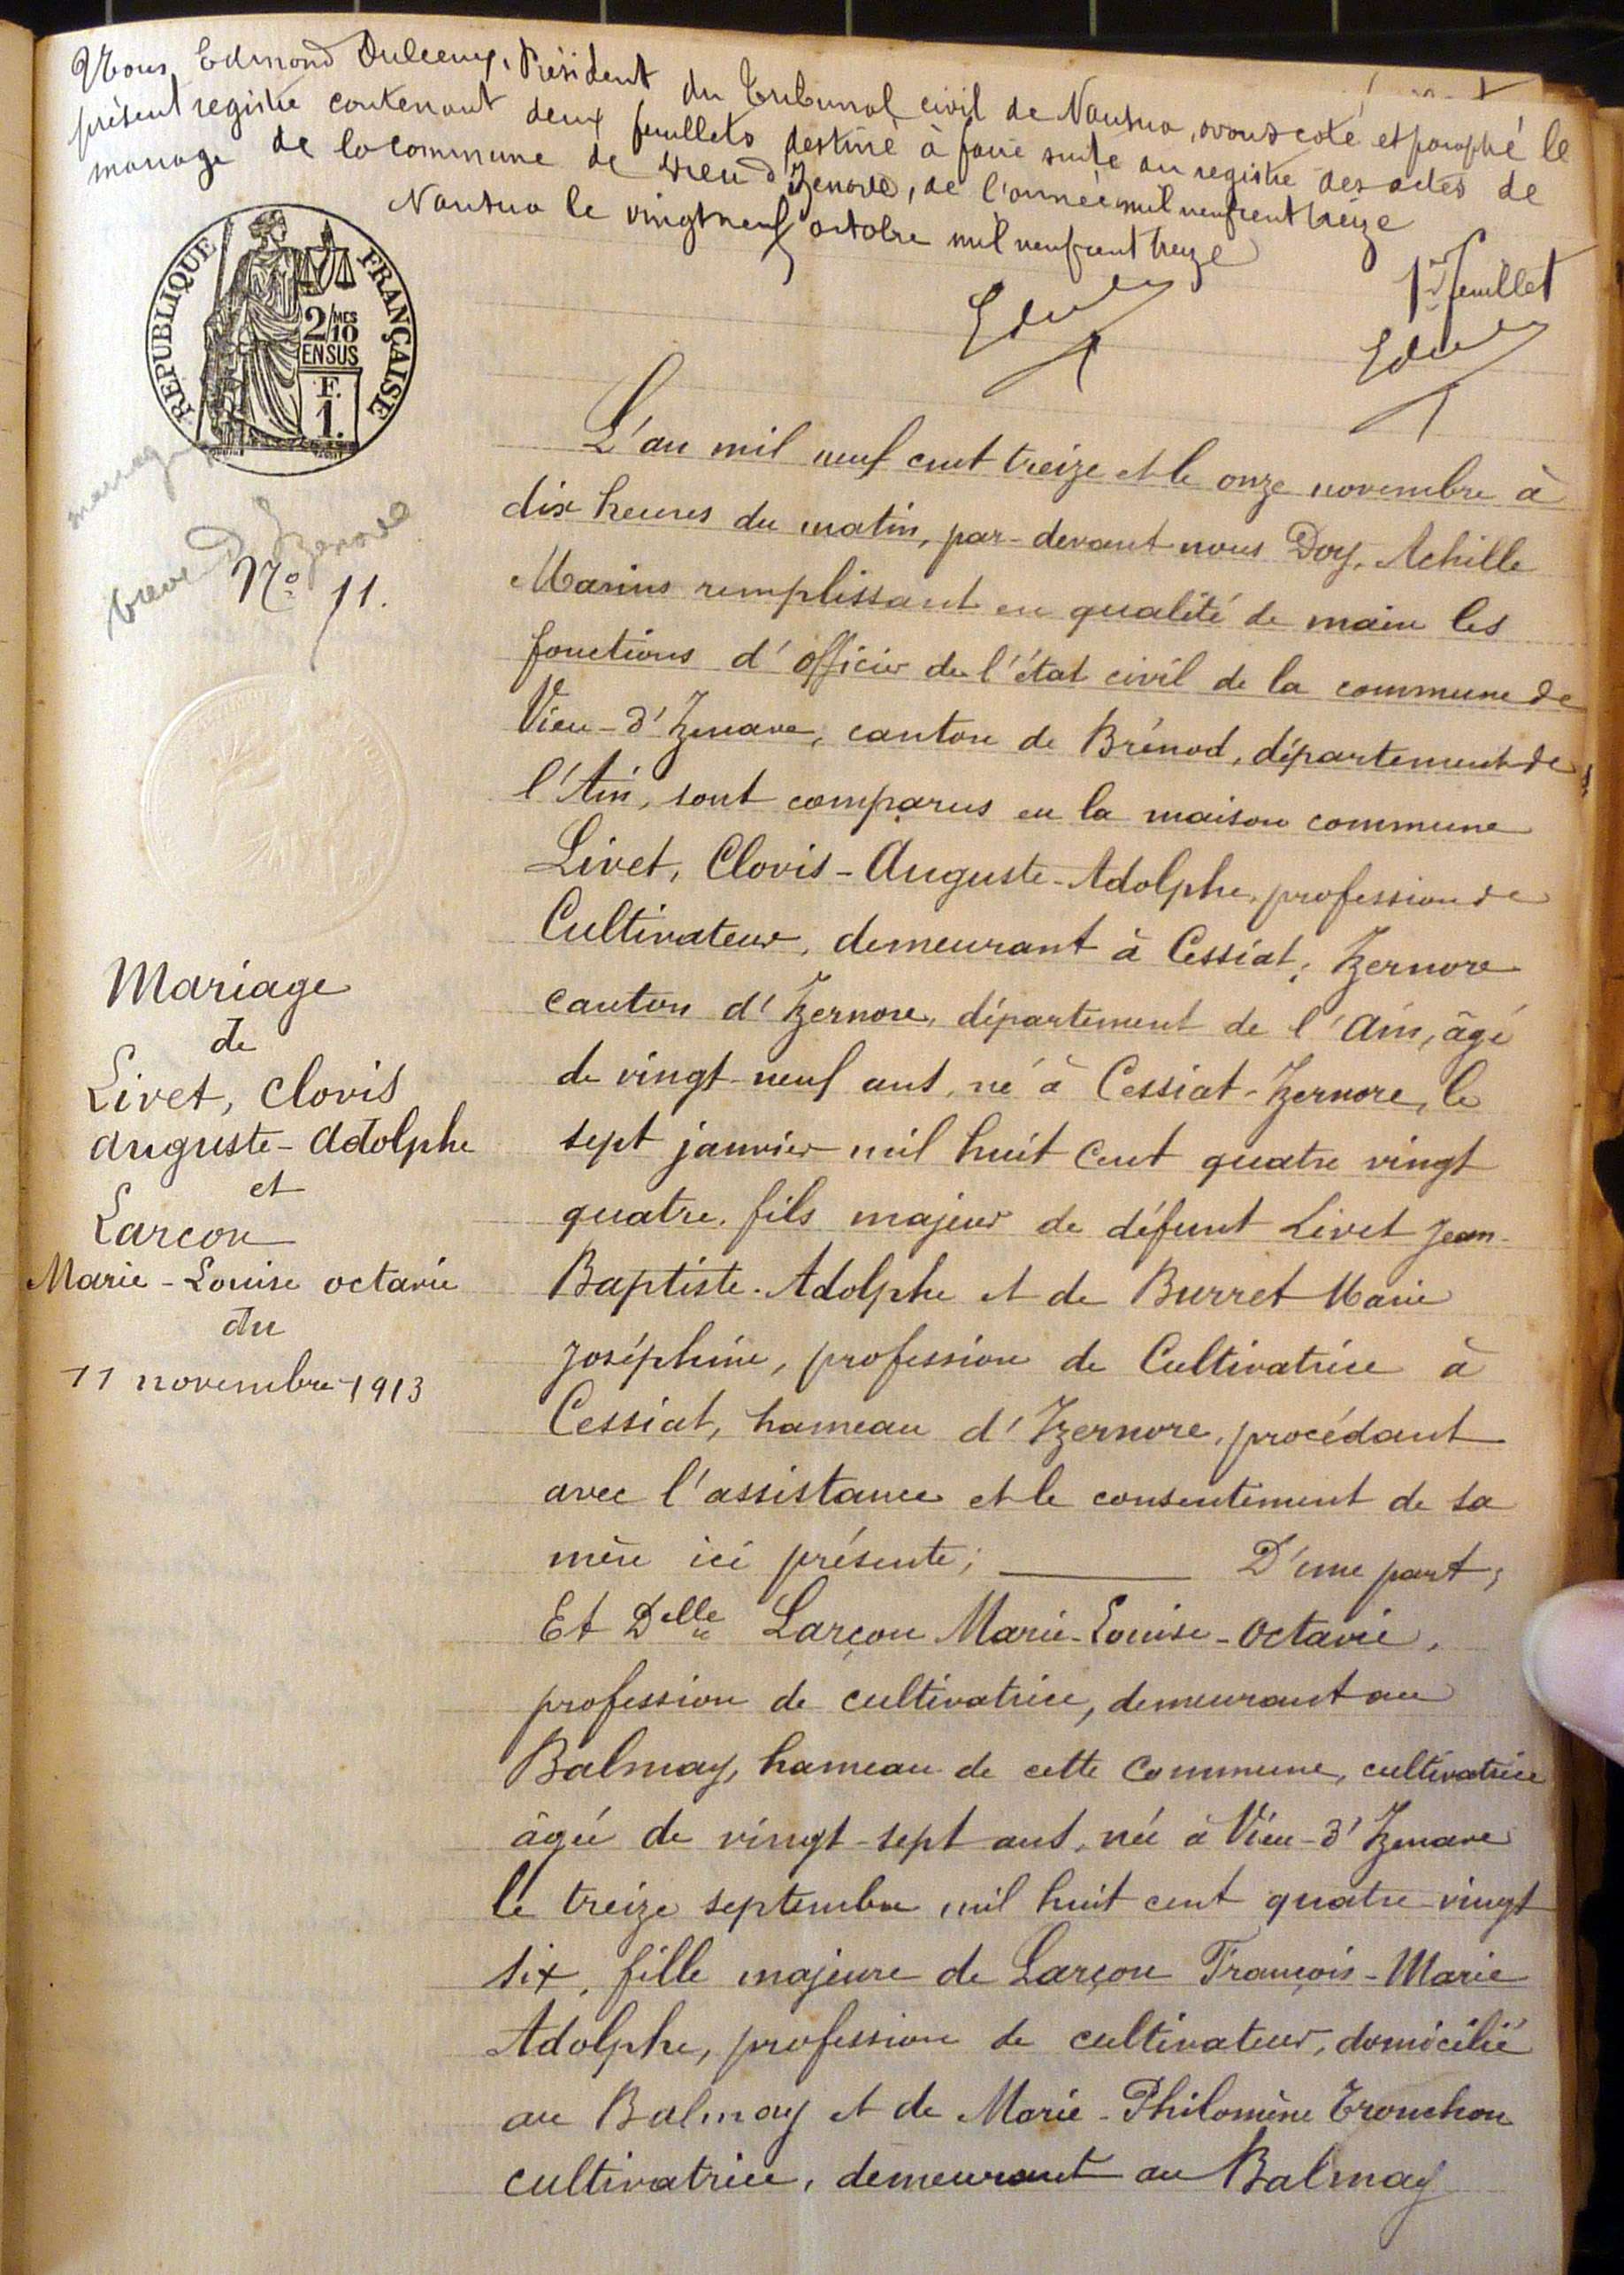 Nous, Edmond Duleeux, Président du Tribunal civil de Nantua, avons coté et paraphé le
présent registre contenant deux feuillets destiné à faire suite au registre des actes de
mariage de la commune de Vieu d'Izenave, de l'année mil neuf cent treize
Nantua le vingt neuf octobre mil neuf cent treize
1er feuillet
REPUBLIQUE FRANÇAISE
2/10 MES
EN SUS
F.
1.
mariage
Vieu d'Izenave
No 11.
Mariage
de
Livet, Clovis
Auguste-Adolphe
et
Larcon
Marie-Louise octavie
du
11 novembre 1913
L'an mil neuf cent treize et le onze novembre à
dix heures du matin, par-devant nous Doy, Achille
Marius remplissant en qualité de maire les
fonctions d'officier de l'état civil de la commune de
Vieu-d'Izenave, canton de Brénod, département de
l'Ain, sont comparus en la maison commune
Livet, Clovis-Auguste-Adolphe, profession de
Cultivateur, demeurant à Cessiat, Izernore
canton d'Izernore, département de l'Ain, âgé
de vingt-neuf ans, né à Cessiat-Izernore, le
sept janvier mil huit cent quatre vingt
quatre, fils majeur de défunt Livet Jean-
Baptiste-Adolphe et de Burret Marie
Joséphine, profession de Cultivatrice à
Cessiat, hameau d'Izernore, procédant
avec l'assistance et le consentement de sa
mère ici présente; D'une part;
Et Delle Larçon Marie-Louise-Octavie,
profession de cultivatrice, demeurant au
Balmay, hameau de cette commune, cultivatrice
âgée de vingt-sept ans, née à Vieu-d'Izenave
le treize septembre mil huit cent quatre-vingt
six, fille majeure de Larçon François-Marie
Adolphe, profession de cultivateur, domicilié
au Balmay et de Marie-Philomène Tronchon
cultivatrice, demeurant au Balmay